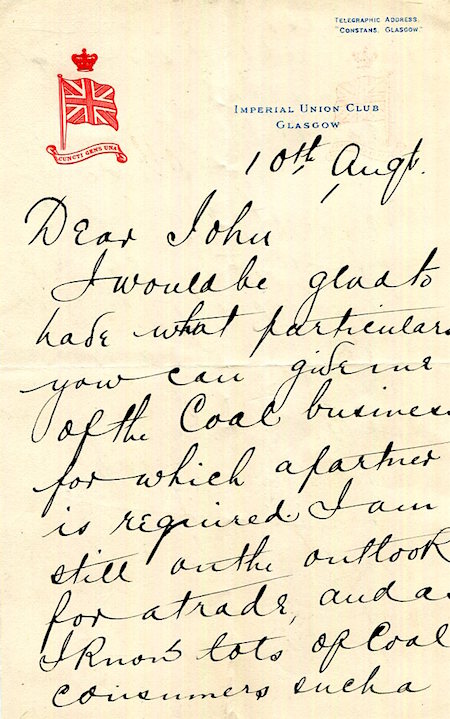 TELEGRAPHIC ADDRESS,
"CONSTANS, GLASGOW."
CUNCTI GENS UNA
IMPERIAL UNION CLUB
GLASGOW
10th Augt.
Dear John
I would be glad to
have what particulars
you can give me
of the Coal business
for which a partner
is required. I am
still on the outlook
for a trade, and as
I know lots of Coal
consumers such a